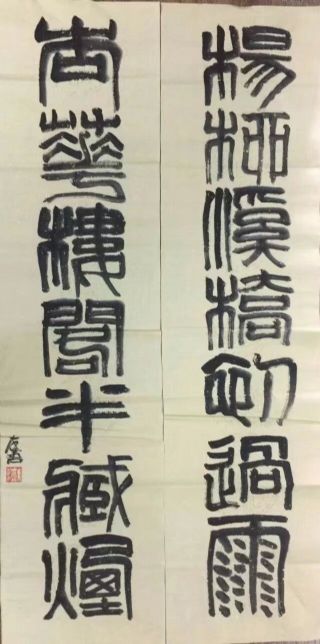 楊柳溪橋初過雨
杏華樓閣半藏煙